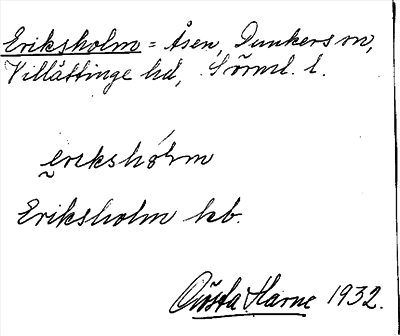 Eriksholm = Åsen, Dunkers sn,
Villåttinge hd, Sörml. l.
erikshòlm
Eriksholm kb.
Gösta Harne 1932.